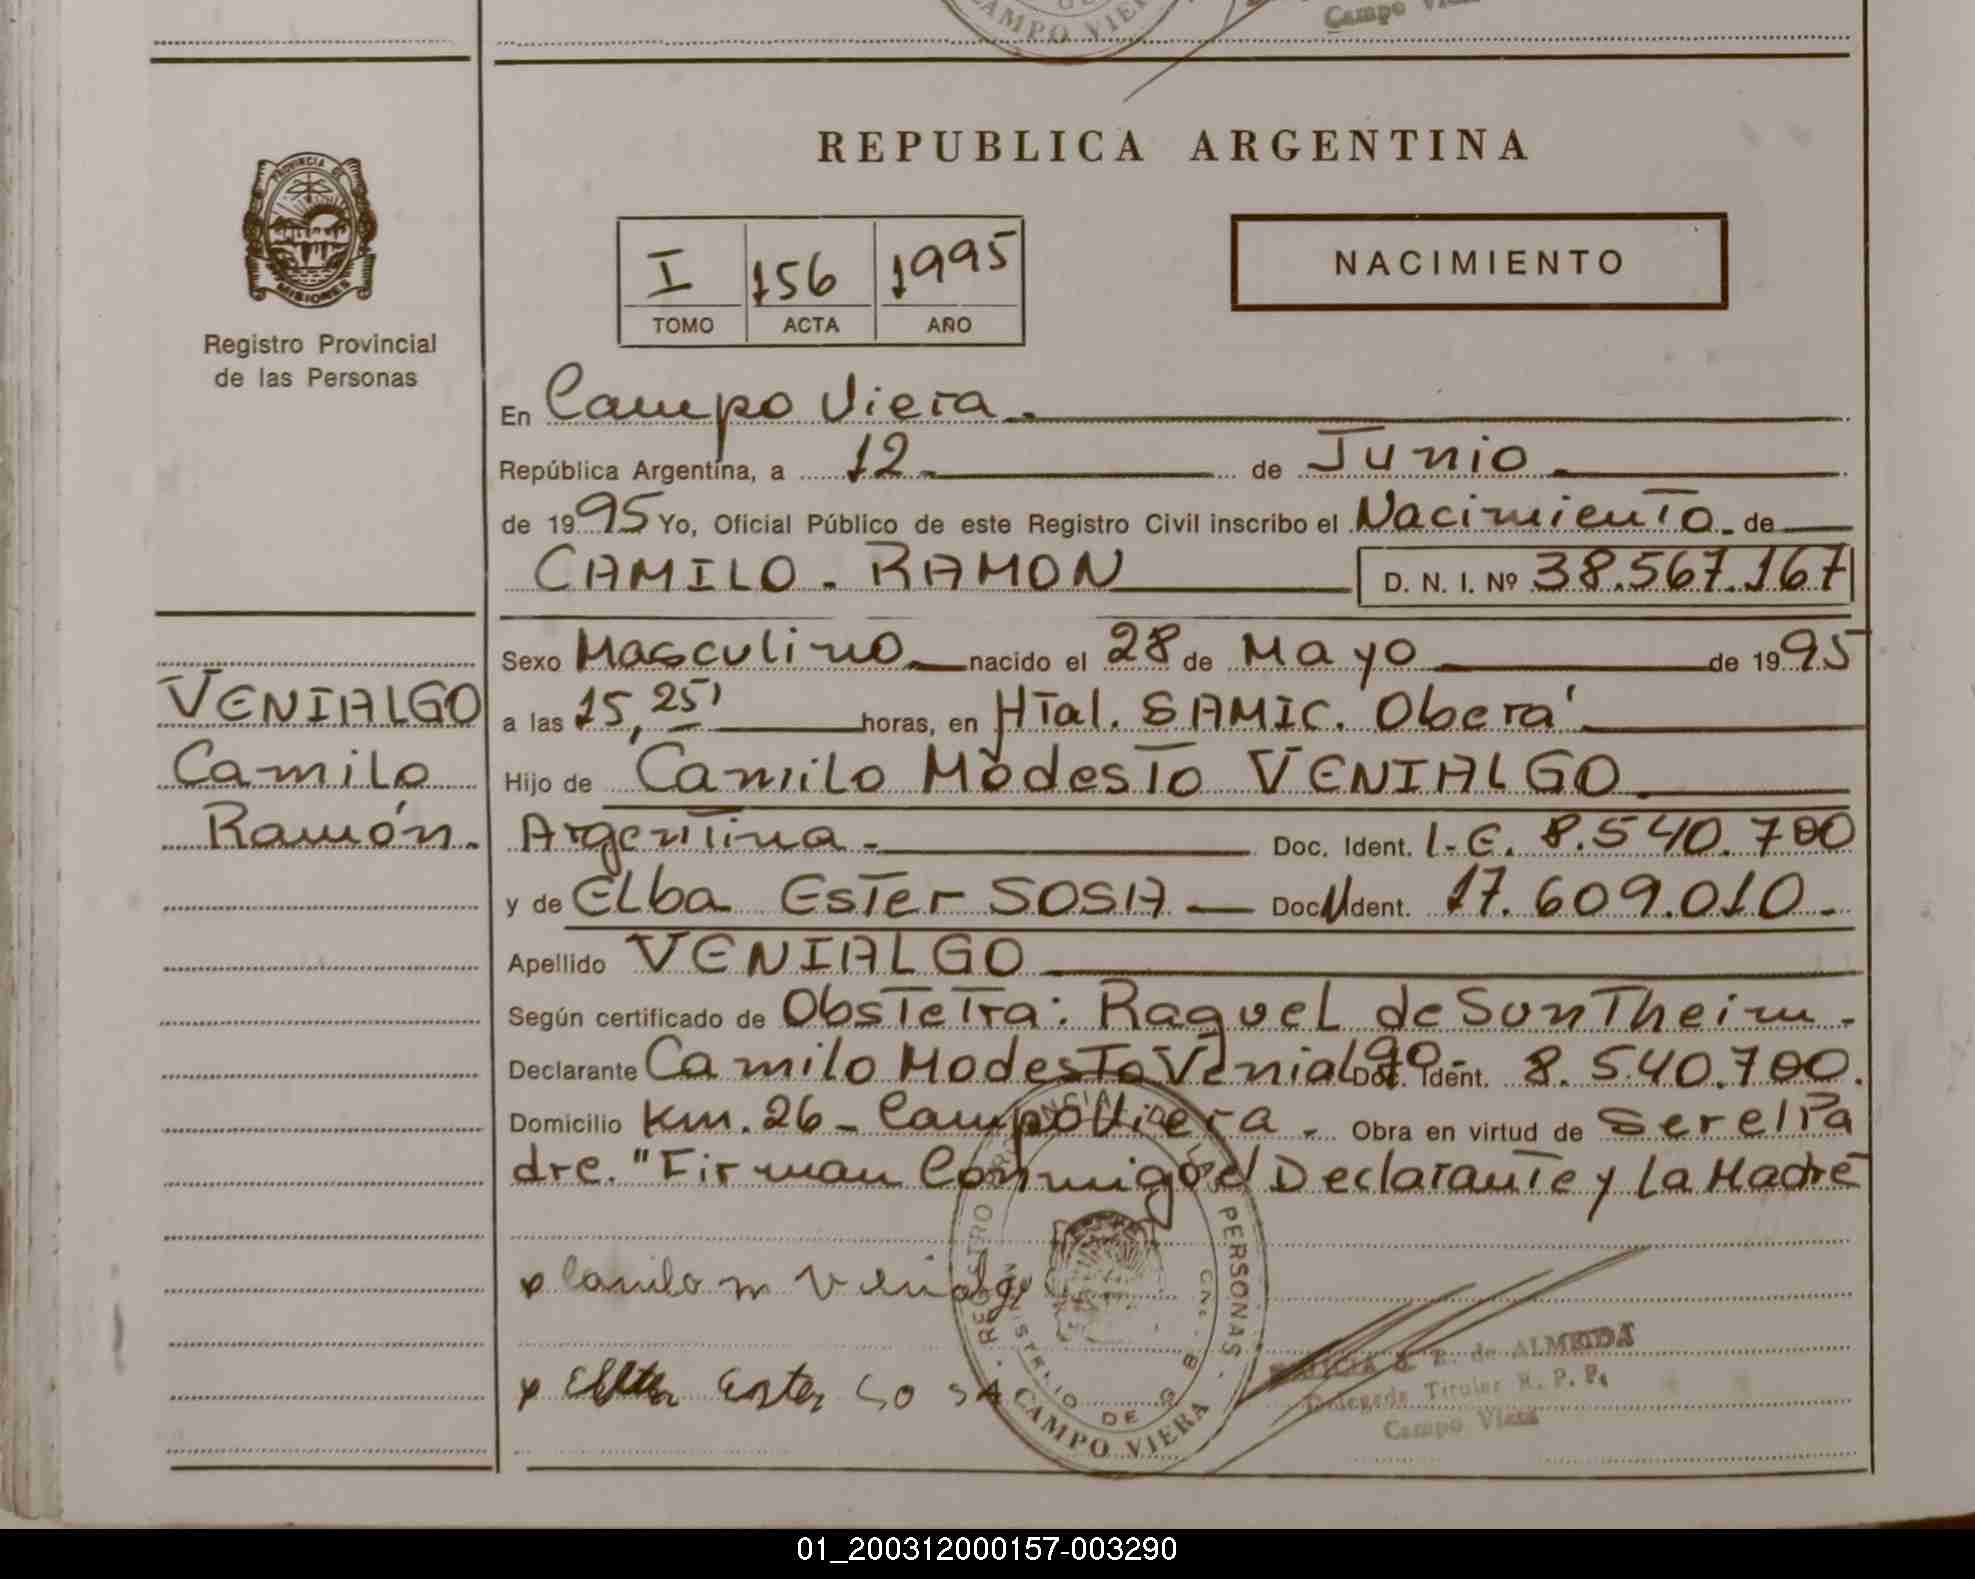 CAMPO VIERA
Campo
REPUBLICA ARGENTINA
PROVINCIA DE
MISIONES
Registro Provincial
de las Personas
I 156 1995
TOMO ACTA AÑO
NACIMIENTO
En Campo Viera.
República Argentina, a 12 de Junio
de 1995 Yo, Oficial Público de este Registro Civil inscribo el Nacimiento de
CAMILO - RAMON D. N. I. Nº 38.567.167
Sexo Masculino nacido el 28 de Mayo de 1995
VENIALGO
Camilo
Ramón.
a las 15,25' horas, en HTal. SAMIC. Oberá
Hijo de Camilo Modesto VENIALGO
Argentina. Doc. Ident. L.E. 8.540.700
y de Elba Ester SOSA Doc. Ident. 17.609.010
Apellido VENIALGO
Según certificado de Obstetra: Raquel de SunTheim.
Declarante Camilo Modesto Venialgo Doc. Ident. 8.540.700.
Domicilio Km. 26 - Campo Viera. Obra en virtud de Ser el Pa
dre. "Firman Conmigo el Declarante y La Madre
x Camilo m Venialgo
x Ester SOSA
REGISTRO PROVINCIAL DE LAS PERSONAS
MINISTERIO DE G
CAMPO VIERA
de ALMEIDA
Delegada Titular R. P. P.
Campo Viera
01_200312000157-003290